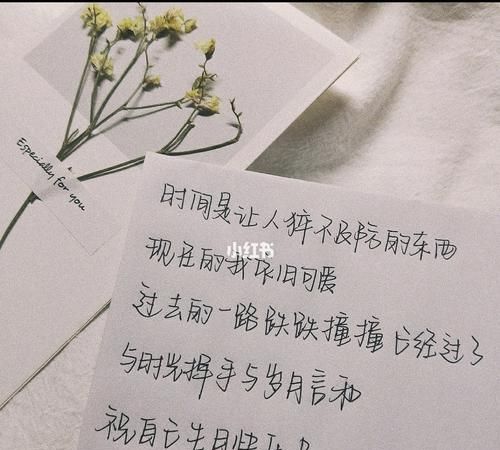 Especially for you
时间是让人猝不及防的东西
小红书
现在的我依旧可爱
过去的一路跌跌撞撞已经过了
与时光挥手与岁月言和
祝自己生日快乐